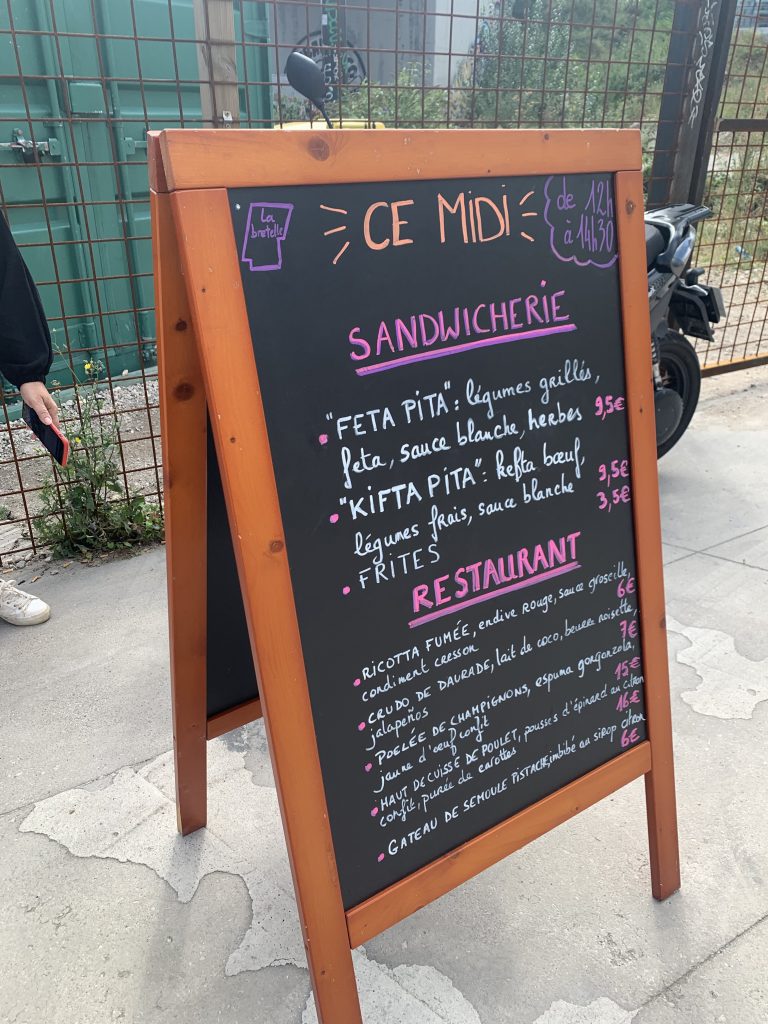 La
bretelle
CE MIDI
de 12h
à 14h30
SANDWICHERIE
"FETA PITA": légumes grillés,
feta, sauce blanche, herbes 9,5€
"KIFTA PITA": kefta bœuf,
légumes frais, sauce blanche 9,5€
FRITES 3,5€
RESTAURANT
RICOTTA FUMÉE, endive rouge, sauce groseille,
condiment cresson 6€
CRUDO DE DAURADE, lait de coco, beurre noisette,
jalapeños 7€
POELÉE DE CHAMPIGNONS, espuma gorgonzola,
jaune d'oeuf confit 15€
HAUT DE CUISSE DE POULET, pousses d'épinard au citron
confit, purée de carottes 16€
GATEAU DE SEMOULE PISTACHE, imbibé au sirop citron 6€